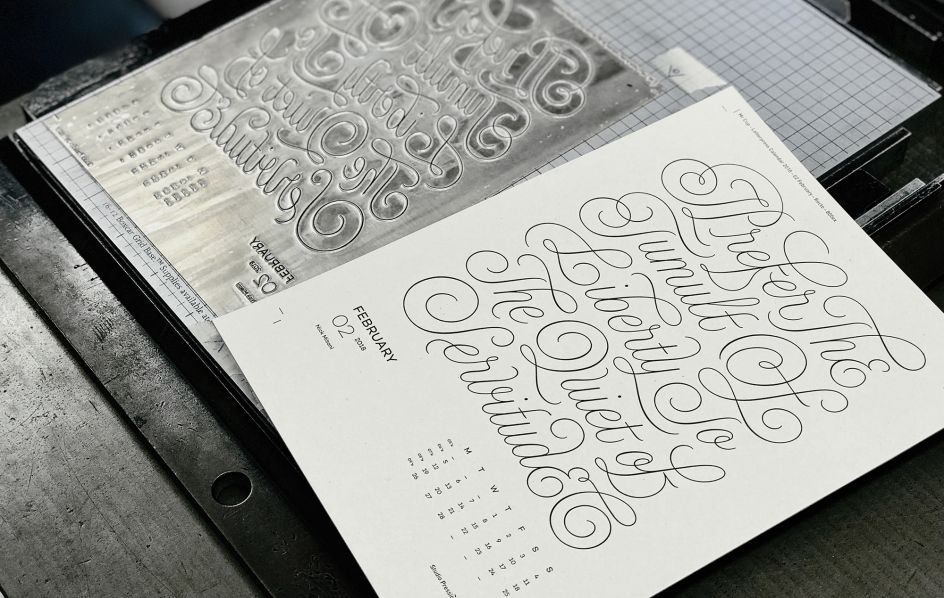 I Prefer The
Tumult Of
Liberty To
The Quiet of
Servitude
FEBRUARY
02 2018
Nick Misani
M T W T F S S
1 2 3 4
5 6 7 8 9 10 11
12 13 14 15 16 17 18
19 20 21 22 23 24 25
26 27 28
FEBRUARY
02
16-12 Boxcar Grid Base™ Supplies available